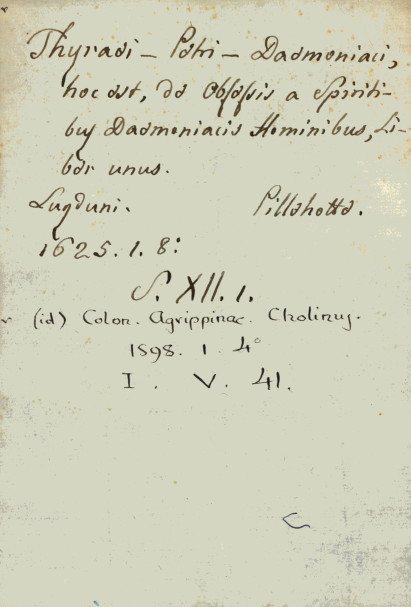 Thyraei - Petri - Daemoniaci,
hoc est, de Obsessis a Spiriti-
bus Daemoniacis Hominibus, Li-
ber unus.
Lugduni. Pillehotte.
1625. 1. 8:
S. XII. 1.
(id) Colon. Agrippinae. Cholinus.
1598. 1. 4°
I. V. 41.